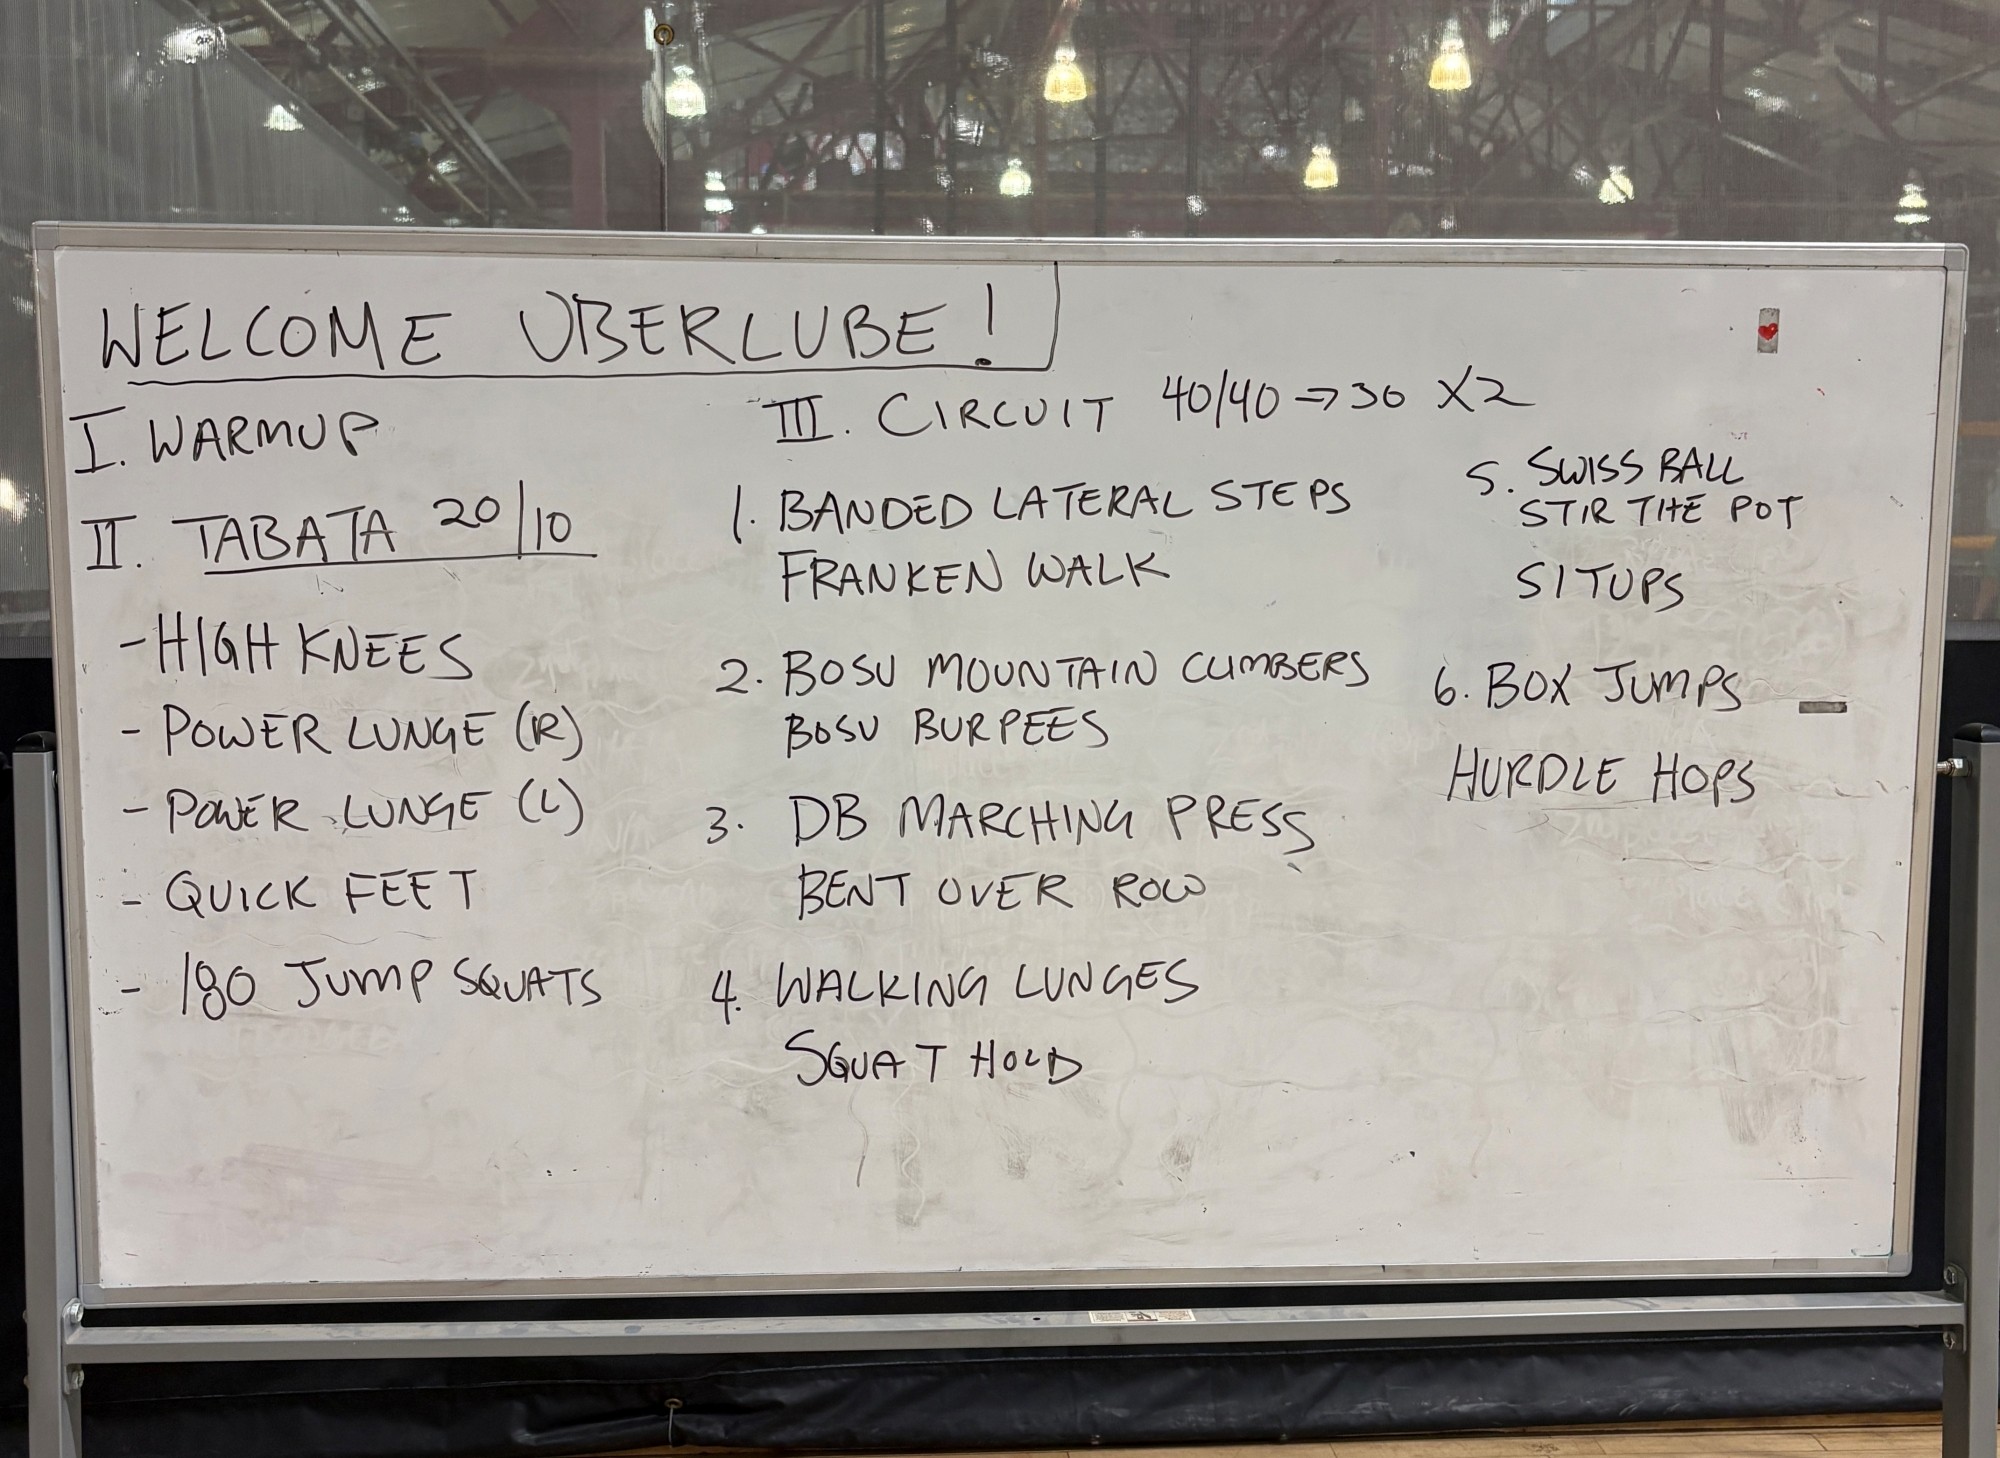 WELCOME UBERLUBE!
I. WARMUP
II. TABATA 20/10
- HIGH KNEES
- POWER LUNGE (R)
- POWER LUNGE (L)
- QUICK FEET
- 180 JUMP SQUATS
III. CIRCUIT 40/40 → 30 X2
1. BANDED LATERAL STEPS
FRANKEN WALK
2. BOSU MOUNTAIN CLIMBERS
BOSU BURPEES
3. DB MARCHING PRESS
BENT OVER ROW
4. WALKING LUNGES
SQUAT HOLD
5. SWISS BALL
STIR THE POT
SITUPS
6. BOX JUMPS
HURDLE HOPS